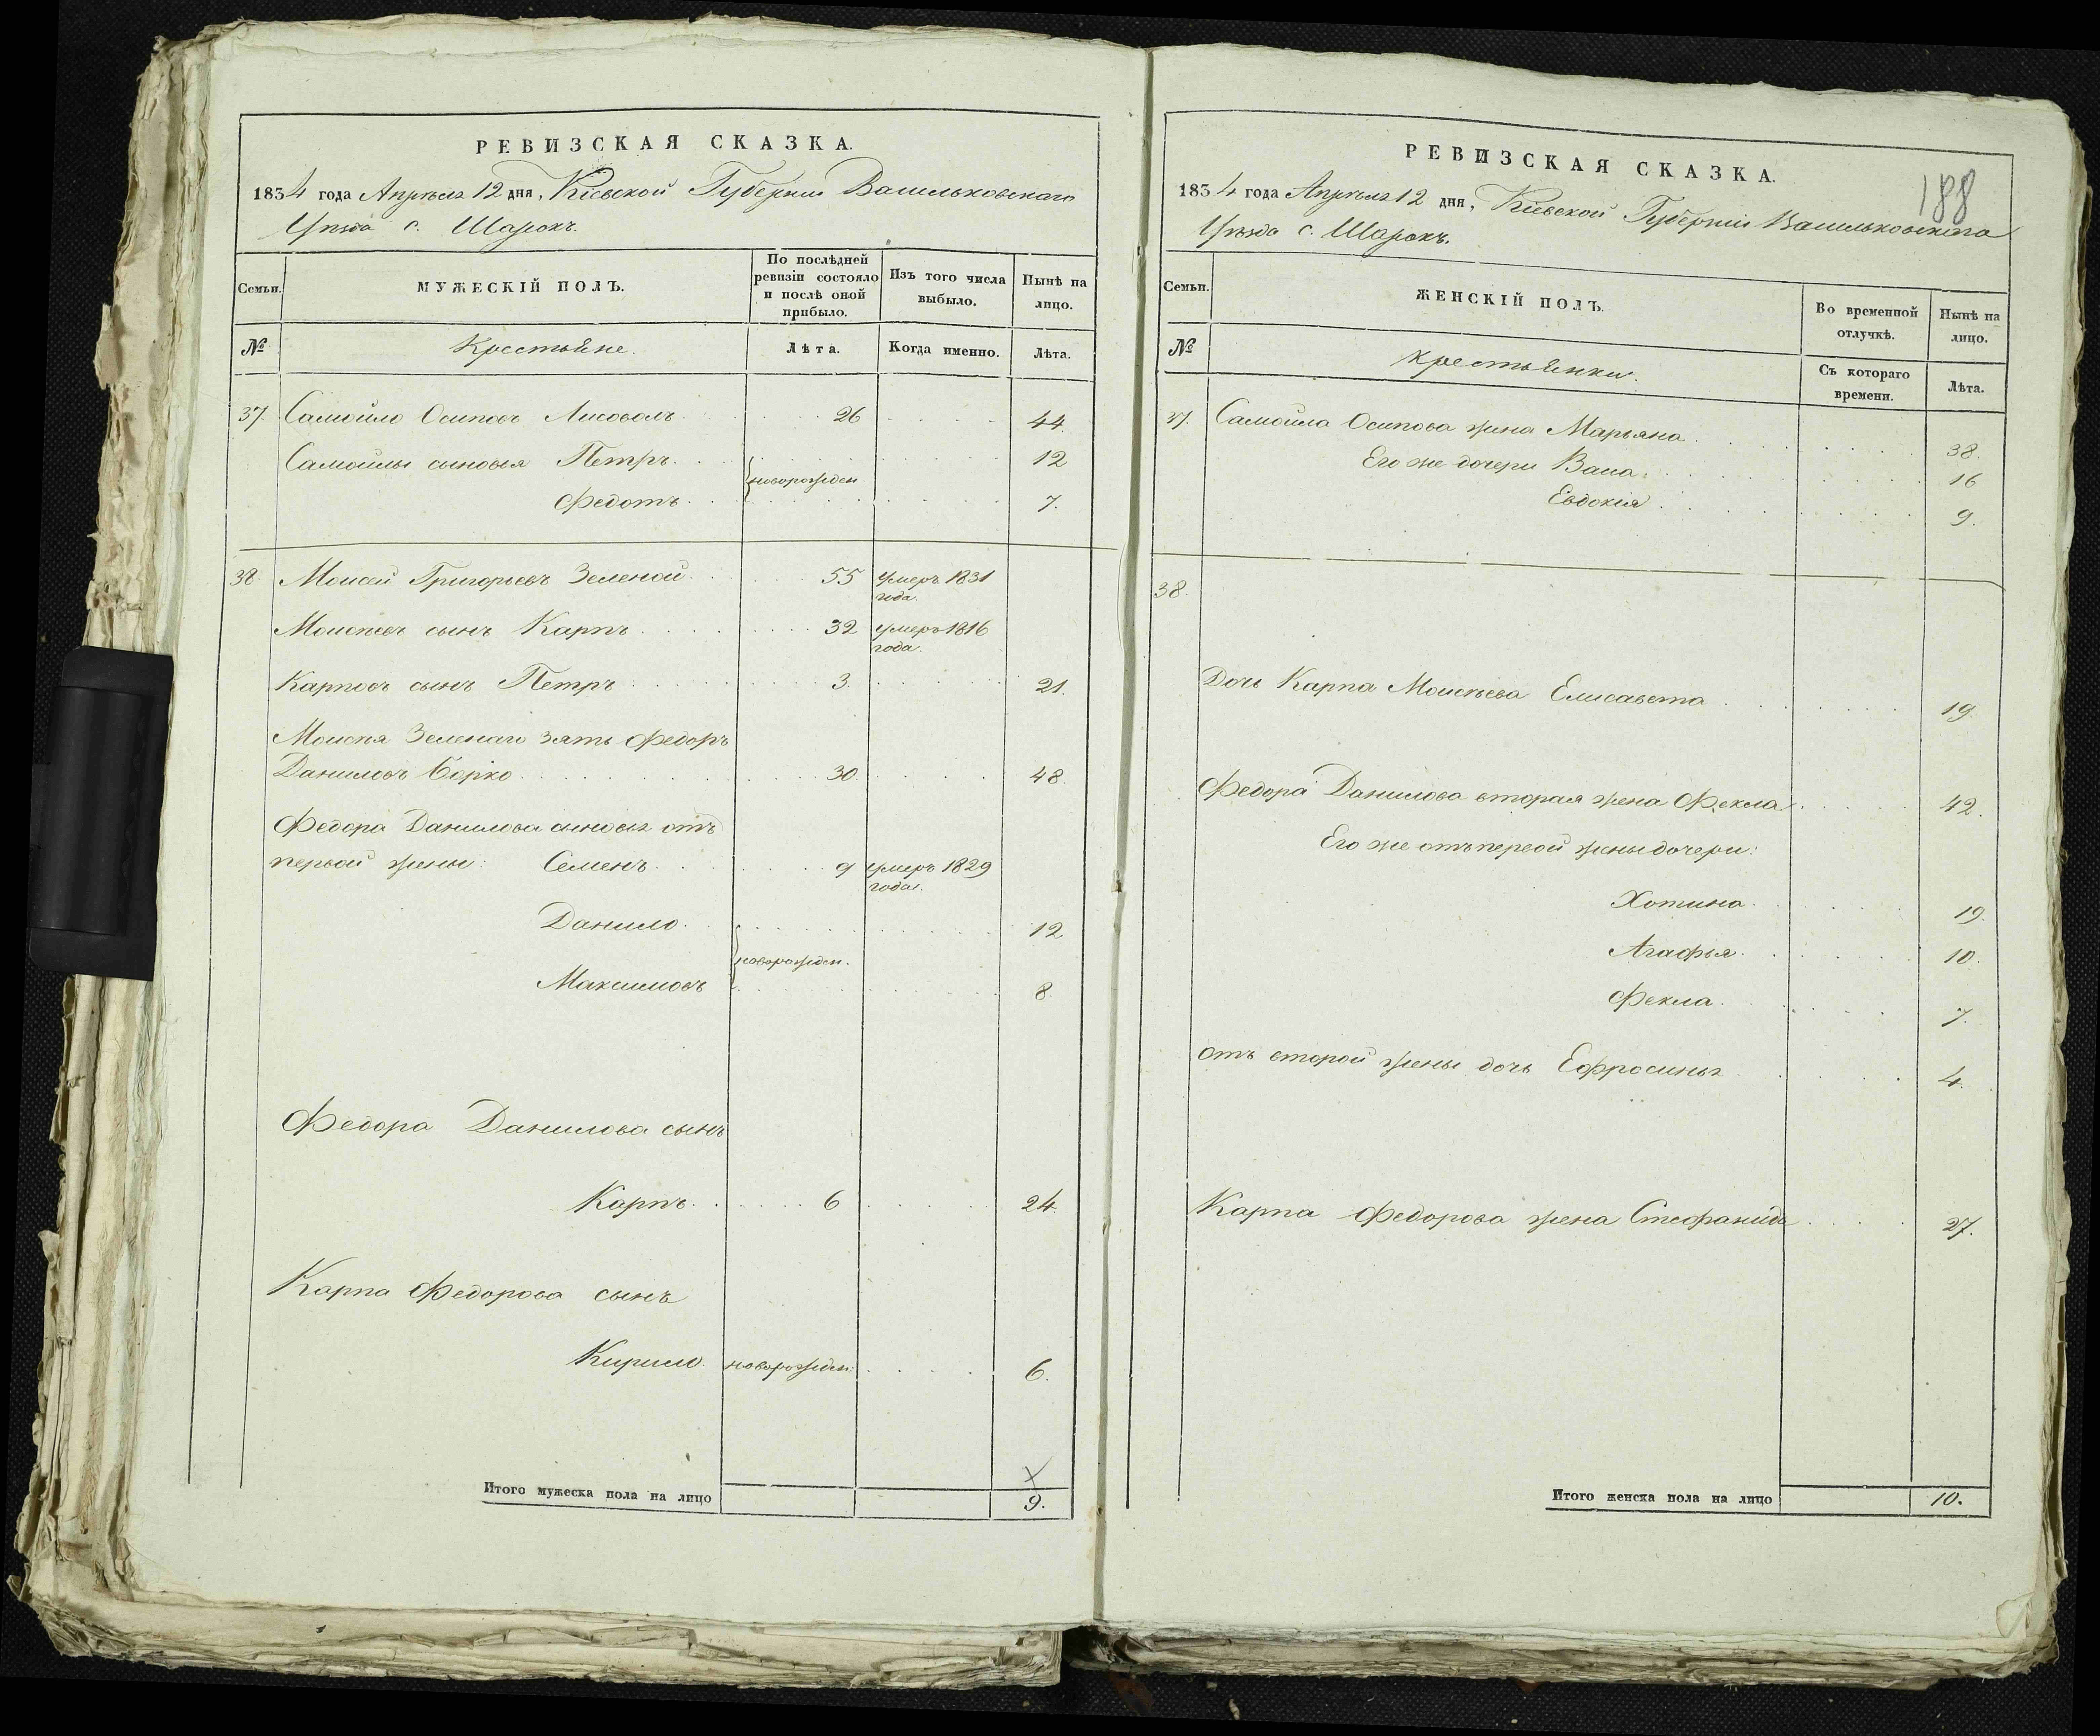 РЕВИЗСКАЯ СКАЗКА.
1834 года Апрѣля 12 дня, Кіевской Губерніи Васильковскаго
Уѣзда с. Шарокъ.
Семьи.
МУЖЕСКІЙ ПОЛЪ.
По послѣдней
ревизіи состояло
и послѣ оной
прибыло.
Изъ того числа
выбыло.
Нынѣ на
лицо.
№
Крестьяне.
Лѣта.
Когда именно.
Лѣта.
37. Самойло Осиповъ 26 44
Самойлы сыновья Петръ 12
новорожден
Федотъ 7.
38. Моисей Григорьевъ Зеленой 55 умеръ 1831
года.
Моисѣевъ сынъ Карпъ 32 умеръ 1816
года.
Карповъ сынъ Петръ 3. 21.
Моисѣя Зеленаго зять Федоръ
Даниловъ Борко 30. 48.
Федора Данилова сыновья отъ
первой жены: Семенъ 9 умеръ 1829
года.
Данило 12
новорожден.
Максимовъ 8.
Федора Данилова сынъ
Карпъ 6 24.
Карпа Федорова сынъ
Кирило новорожден: 6.
Итого мужеска пола на лицо 9.
РЕВИЗСКАЯ СКАЗКА.
188
1834 года Апрѣля 12 дня, Кіевской Губерніи Васильковскаго
Уѣзда с. Шарокъ.
Семьи.
ЖЕНСКІЙ ПОЛЪ.
Во временной
отлучкѣ.
Нынѣ на
лицо.
№
Крестьянки.
Съ котораго
времени.
Лѣта.
37. Самойла Осипова жена Марьяна 38.
Его же дочери Васа 16
Евдокія 9.
38.
Дочь Карпа Моисѣева Елисавета 19.
Федора Данилова вторая жена Фекла 42.
Его же отъ первой жены дочери:
Хотина 19.
Агафья 10.
Фекла 7.
отъ второй жены дочь Ефросинья 4.
Карпа Федорова жена Стефанида 27.
Итого женска пола на лицо 10.